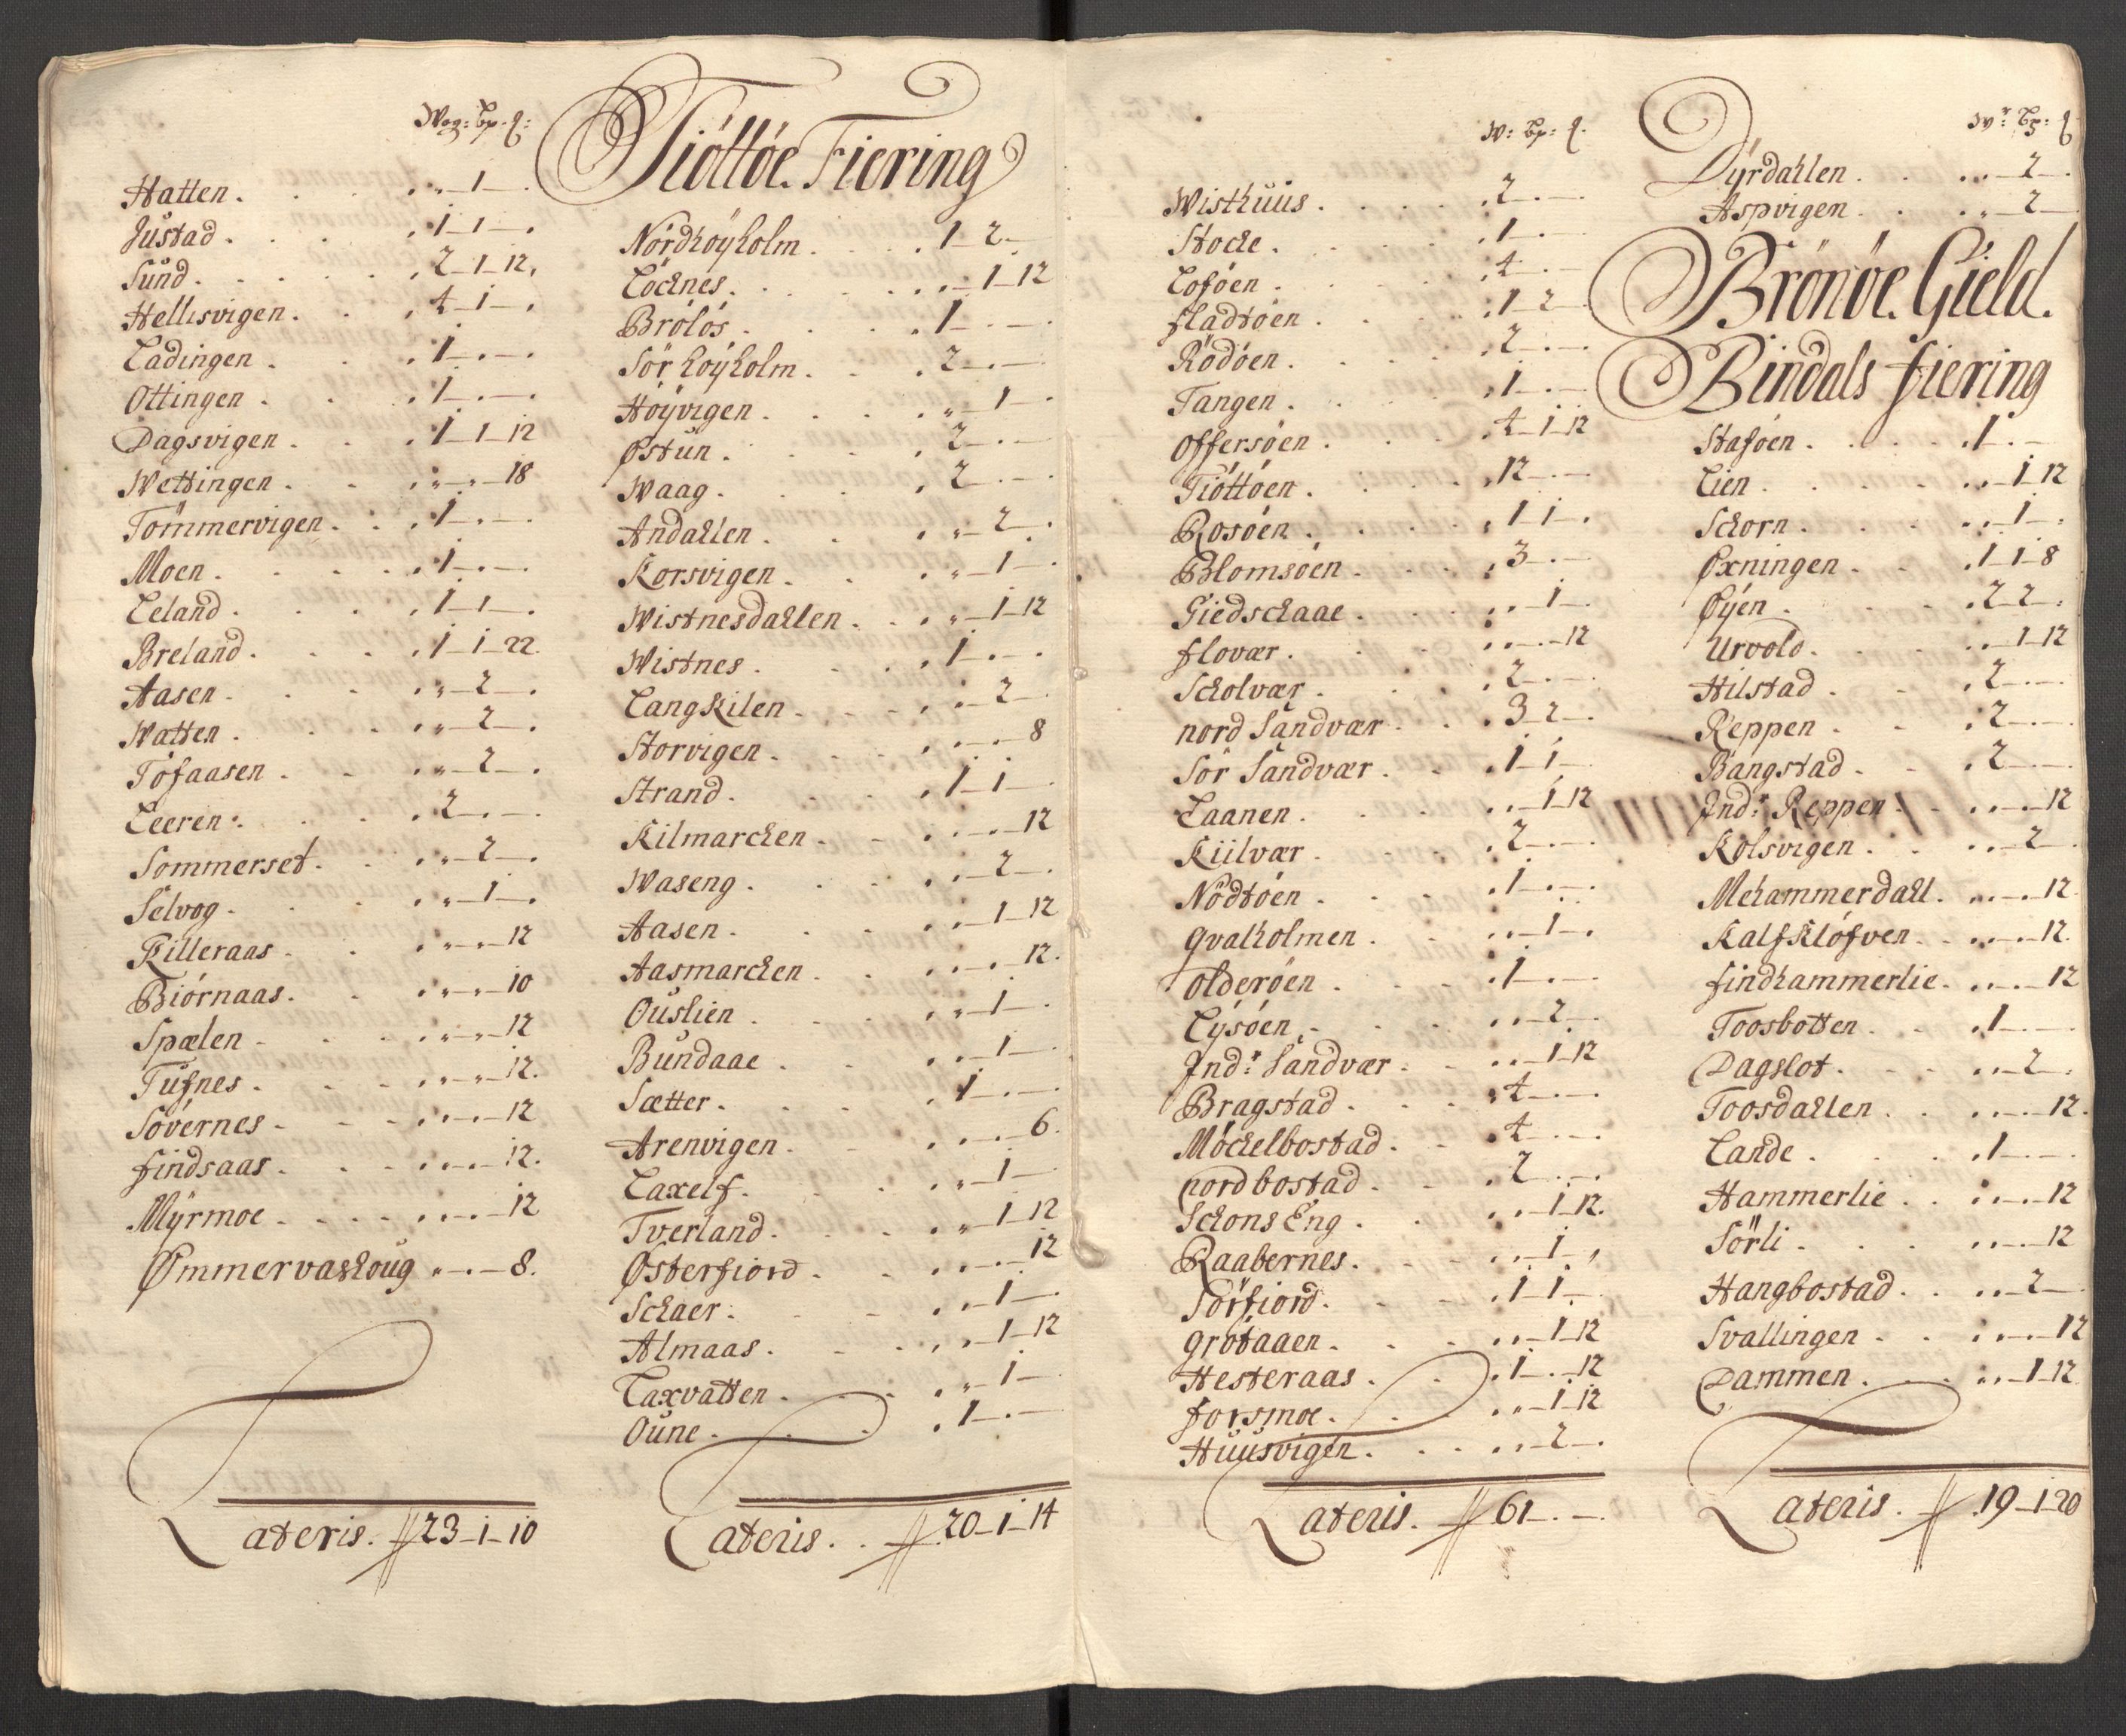 Wog: bp. q:
Hatten. . . „ 1 .
Justad . . . 1 1 .
Sund . . . 2 1 12.
Hellesvigen . . 4 1 .
Ladingen . . 1 . .
Ottingen . . 1 . .
Dagsvigen . . 1 1 12
Wettingen . . „ „ 18
Tömmervigen . . 1 . .
Moen . . . 1 . .
Leland . . . 1 1 .
Breland . . . 1 1 22.
Aasen . . . „ 2 .
Watten . . . „ 2 .
Tofaasen . . „ 2 .
Leeren . . . 2 . .
Sommerset . . „ 2 .
Selvog . . . „ 1 .
Killeraas . . „ „ 12
Biórnaas . . „ „ 10
Spælen . . . „ „ 12
Tufnes . . . „ „ 12.
Sóvernes . . „ „ 12
findsaas . . „ „ 12.
Mÿrmoe . . . „ „ 12
Ømmervashoug „ „ 8.
Lateris. 23 1 10
Tióttóe Fiering
Nordhöÿholm . . 1 2 .
Löcknes . . . „ 1 12
Brólós . . . 1 . .
Sör höÿholm . . 2 . .
Höÿvigen . . „ 1 .
Østun . . . 2 . .
Waag . . . 2 . .
Andahlen . . „ 2 .
Korsvigen . . „ 1 .
Wistnesdahlen . . „ 1 12
Wistnes . . . 1 . .
Langkilen . . „ 2 .
Storvigen . . „ „ 8
Strand . . . 1 1 .
Kilmarchen . . „ „ 12
Waseng . . . „ 2 .
Aasen . . . „ 1 12
Aasmarchen . . „ „ 12.
Ouslien . . . „ 1 .
Bundaae . . . „ 1 .
Sætter . . . 1 . .
Arenvigen . . „ „ 6.
Laxelf . . . „ 1 .
Tverland . . . „ 1 12
Østerfiord . . „ „ 12
Schaer . . . „ 1 .
Almaas . . . „ 1 12
Laxvatten . . „ 1 .
Oune . . . 1 . .
Lateris. 20 1 14
W: bp: q.
Wisthuus . . . 2 . .
Stocke . . . 1 . .
Lofóen . . . 4 . .
fladtóen . . . 1 2 .
Rödóen . . . 2 . .
Tangen . . . 1 . .
Offersóen . . . 4 1 12
Tióttóen . . . 12 . .
Rosóen . . . 1 1 .
Blomsóen . . . 3 . .
Giedschaae . . „ 1 .
flovær . . . „ „ 12
Scholvær . . . 2 . .
nord Sandvær . . 3 2 .
Sör Sandvær . . 1 1 .
Laanen . . . „ 1 12
Kiilvær . . . 2 . .
Nödtóen . . . 1 . .
Qvalholmen . . „ 1 .
Olderóen . . . 1 . .
Lÿsóen . . . „ 2 .
Ind: Sandvær . . „ 1 12
Bragstad . . . 4 . .
Móckelbostad . . 4 . .
nordbostad . . 2 . .
Schons Eng . . „ 1 12.
Raabernes . . „ 1 .
Sórfiord . . . 1 1 .
Grótaaen . . „ 1 12
Hesteraas . . 1 . 12
forsmoe . . . „ 1 12
Huusvigen . . „ 2 .
Lateris. 61 . .
Wr: bp: q
Dÿrdahlen . . „ 2 .
Aspvigen . . „ 2 .
Brönöe. Gield.
Bindals fiering
Stafóen . . . 1 . .
Lien . . . „ 1 12
Schorn . . . „ 1 .
Øxningen . . 1 1 8
Øÿen . . . 2 2 .
Urvold . . . „ 1 12
Hilstad . . . 2 . .
Reppen . . . 2 . .
Bangstad . . . 2 . .
Ind: Reppen . . „ „ 12
Kolsvigen . . „ 2 .
Mehammerdahl . „ „ 12.
Kalfklófven . „ „ 12.
findhammerlie . „ „ 12
Toosbotten . . 1 . .
Dagslot . . . „ 2 .
Toosdahlen . . „ „ 12.
Lande . . . 1 . .
Hammerlie . . „ „ 12
Sörli . . . „ „ 12
Hangbostad . . „ 2 .
Svallingen . . „ „ 12
Dammen . . . „ 1 12
Lateris. 19 1 20